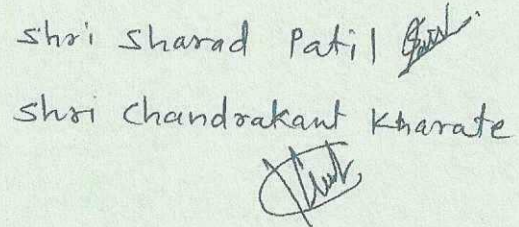 Shri Sharad Patil
Shri Chandrakant Kharate